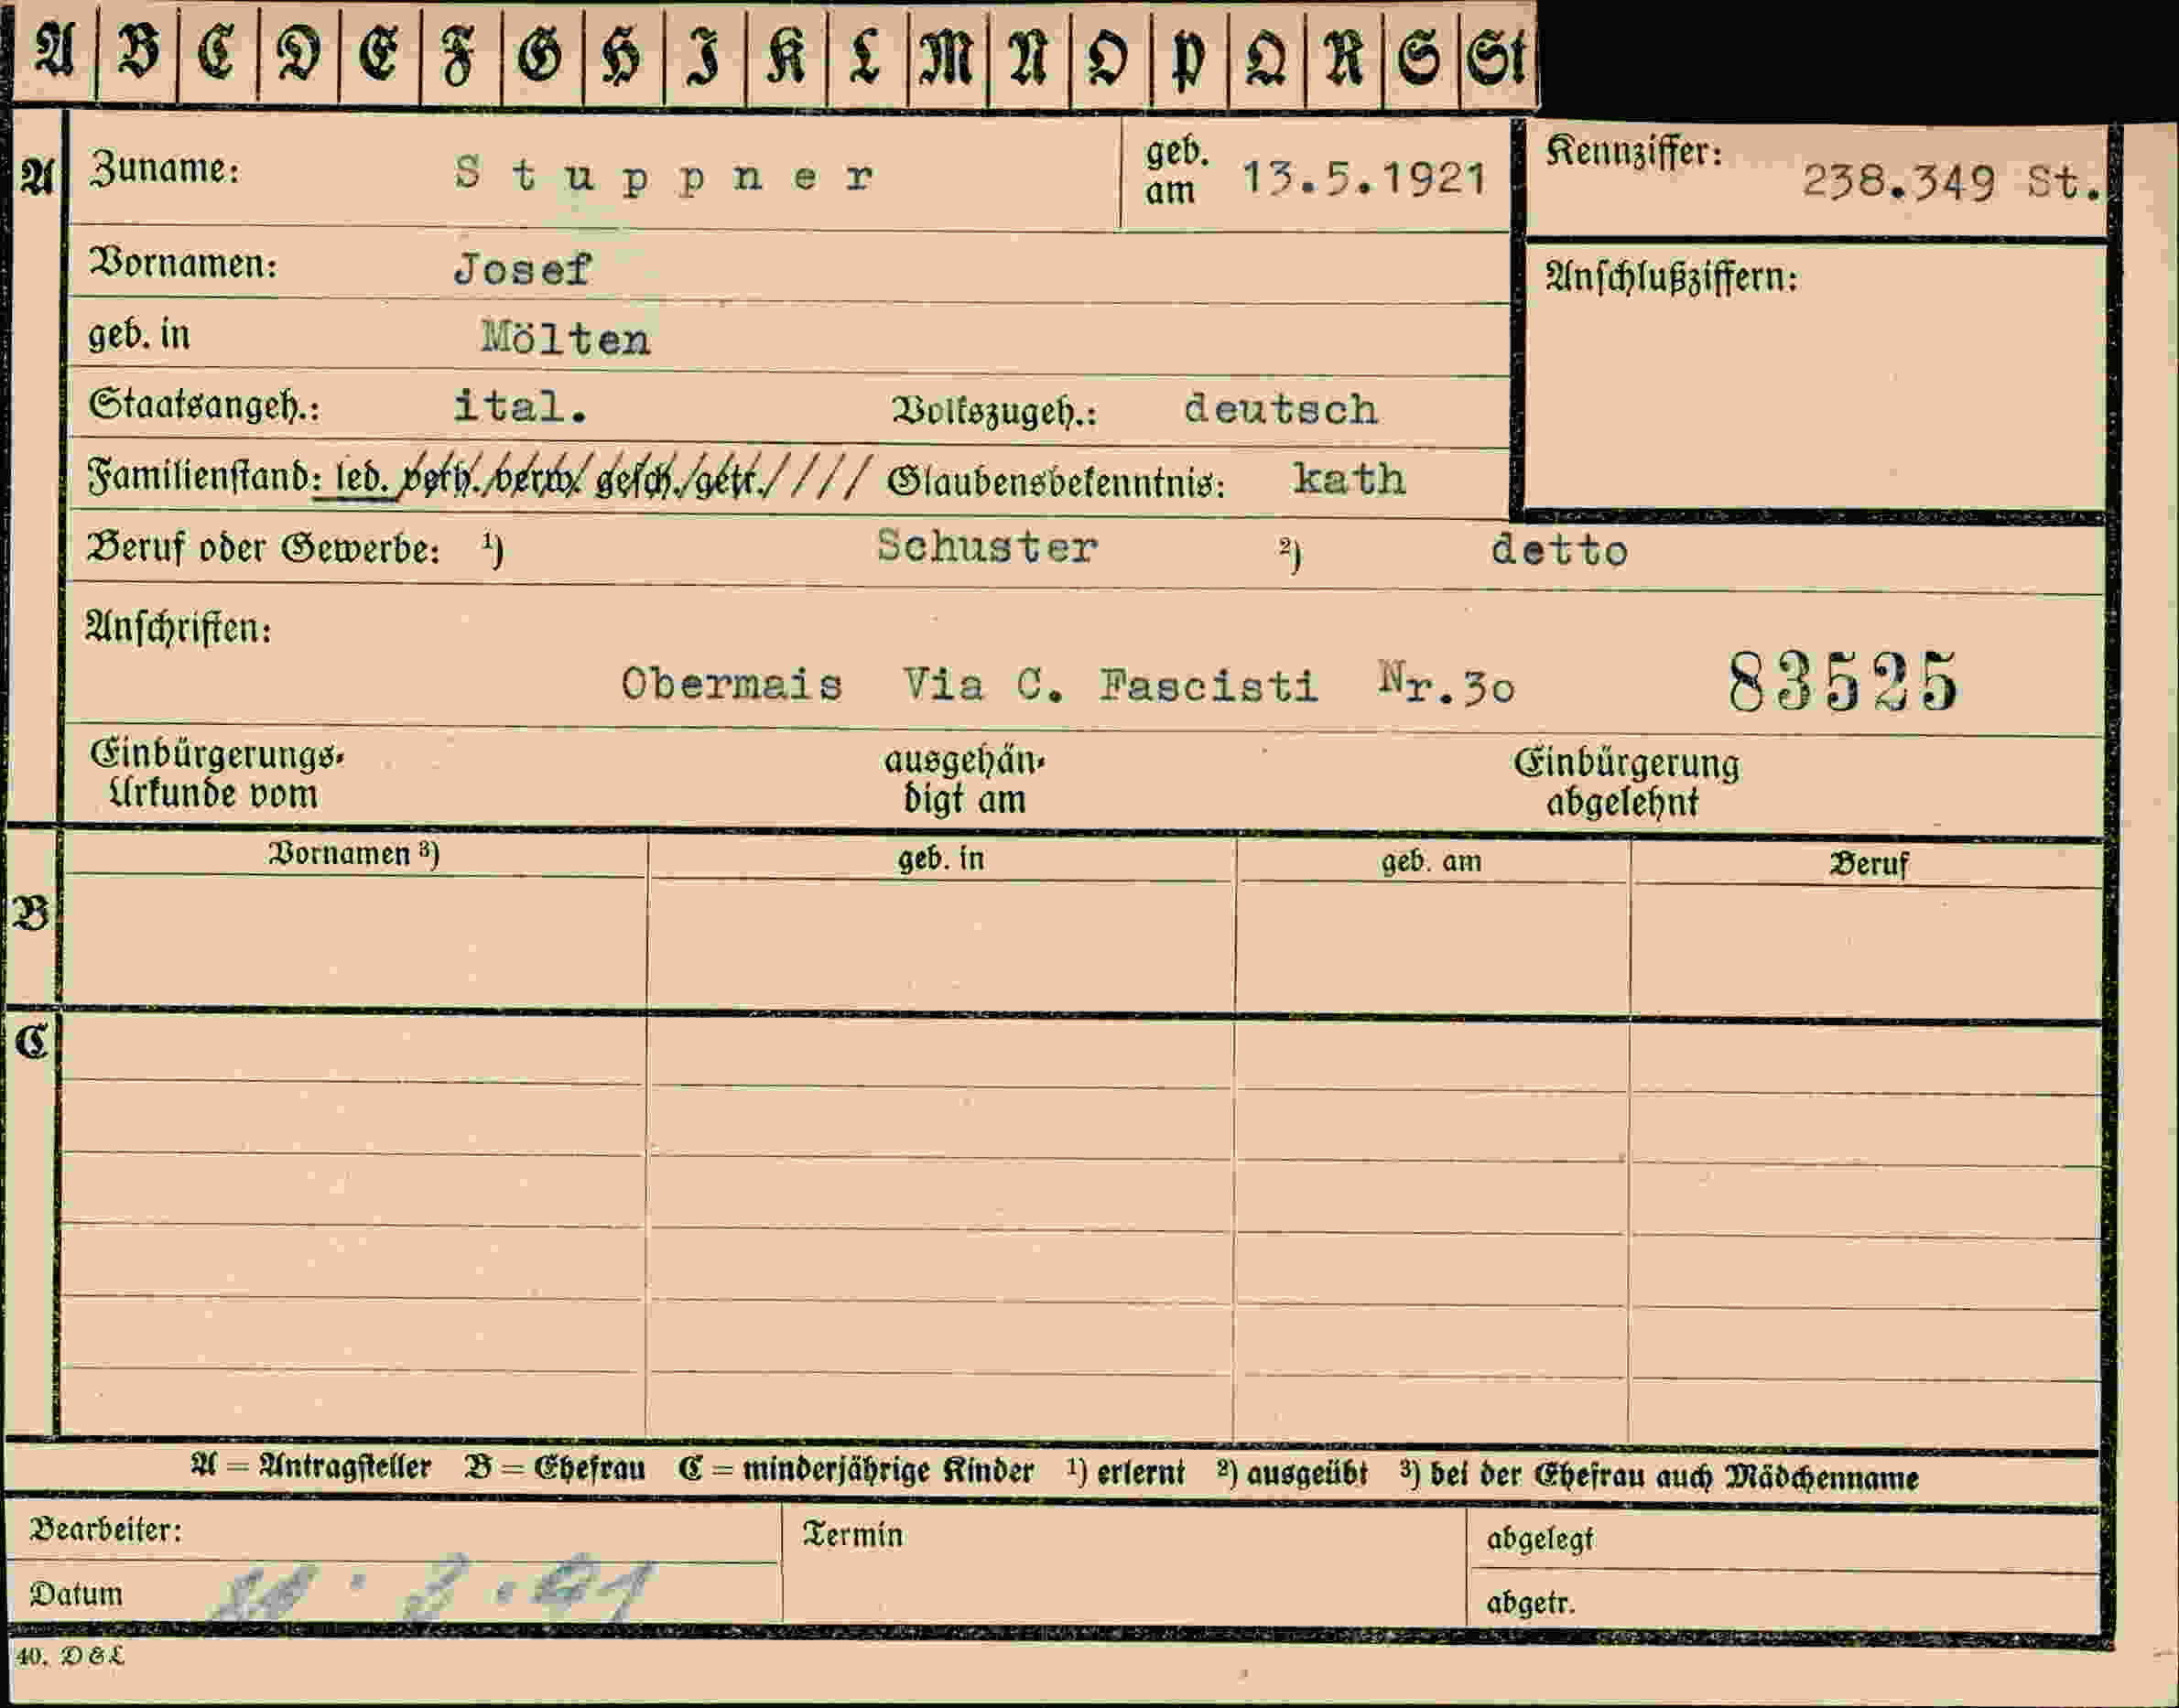 A B C D E F G H I K L M N O P Q R S St
A Zuname: Stuppner geb. am 13.5.1921 Kennziffer: 238.349 St.
Vornamen: Josef Anschlußziffern:
geb. in Mölten
Staatsangeh.: ital. Volkszugeh.: deutsch
Familienstand: led. verh. verw. gesch. getr. //// Glaubensbekenntnis: kath
Beruf oder Gewerbe: ¹) Schuster ²) detto
Anschriften:
Obermais Via C. Fascisti Nr.3o 83525
Einbürgerungs- ausgehän- Einbürgerung
Urkunde vom digt am abgelehnt
Vornamen ³) geb. in geb. am Beruf
B
C
A = Antragsteller B = Ehefrau C = minderjährige Kinder ¹) erlernt ²) ausgeübt ³) bei der Ehefrau auch Mädchenname
Bearbeiter: Termin abgelegt
Datum abgetr.
40. D & L